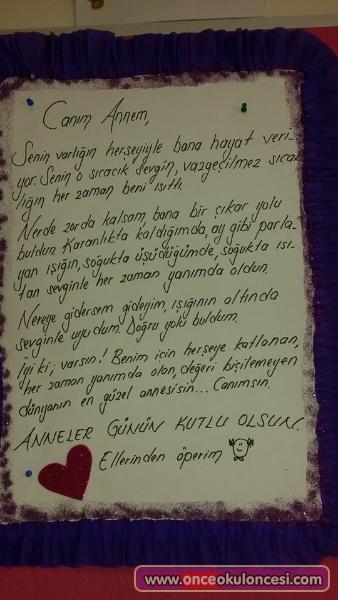 Canım Annem,
Senin varlığın herşeyiyle bana hayat veri-
yor. Senin o sıcacık sevgin, vazgeçilmez sıcak
lığın her zaman beni ısıttı.
Nerde zorda kalsam, bana bir çıkar yolu
buldun. Karanlıkta kaldığımda, ay gibi parla-
yan ışığın, soğukta üşüdüğümde, soğukta ısı-
tan sevginle her zaman yanımda oldun.
Nereye gidersem gideyim, ışığının altında
sevginle uyudum. Doğru yolu buldum.
İyi ki, varsın! Benim için herşeye katlanan,
her zaman yanımda olan, değeri biçilemeyen
dünyanın en güzel annesisin... Canımsın.
ANNELER GÜNÜN KUTLU OLSUN.
Ellerinden öperim
www.onceokuloncesi.com